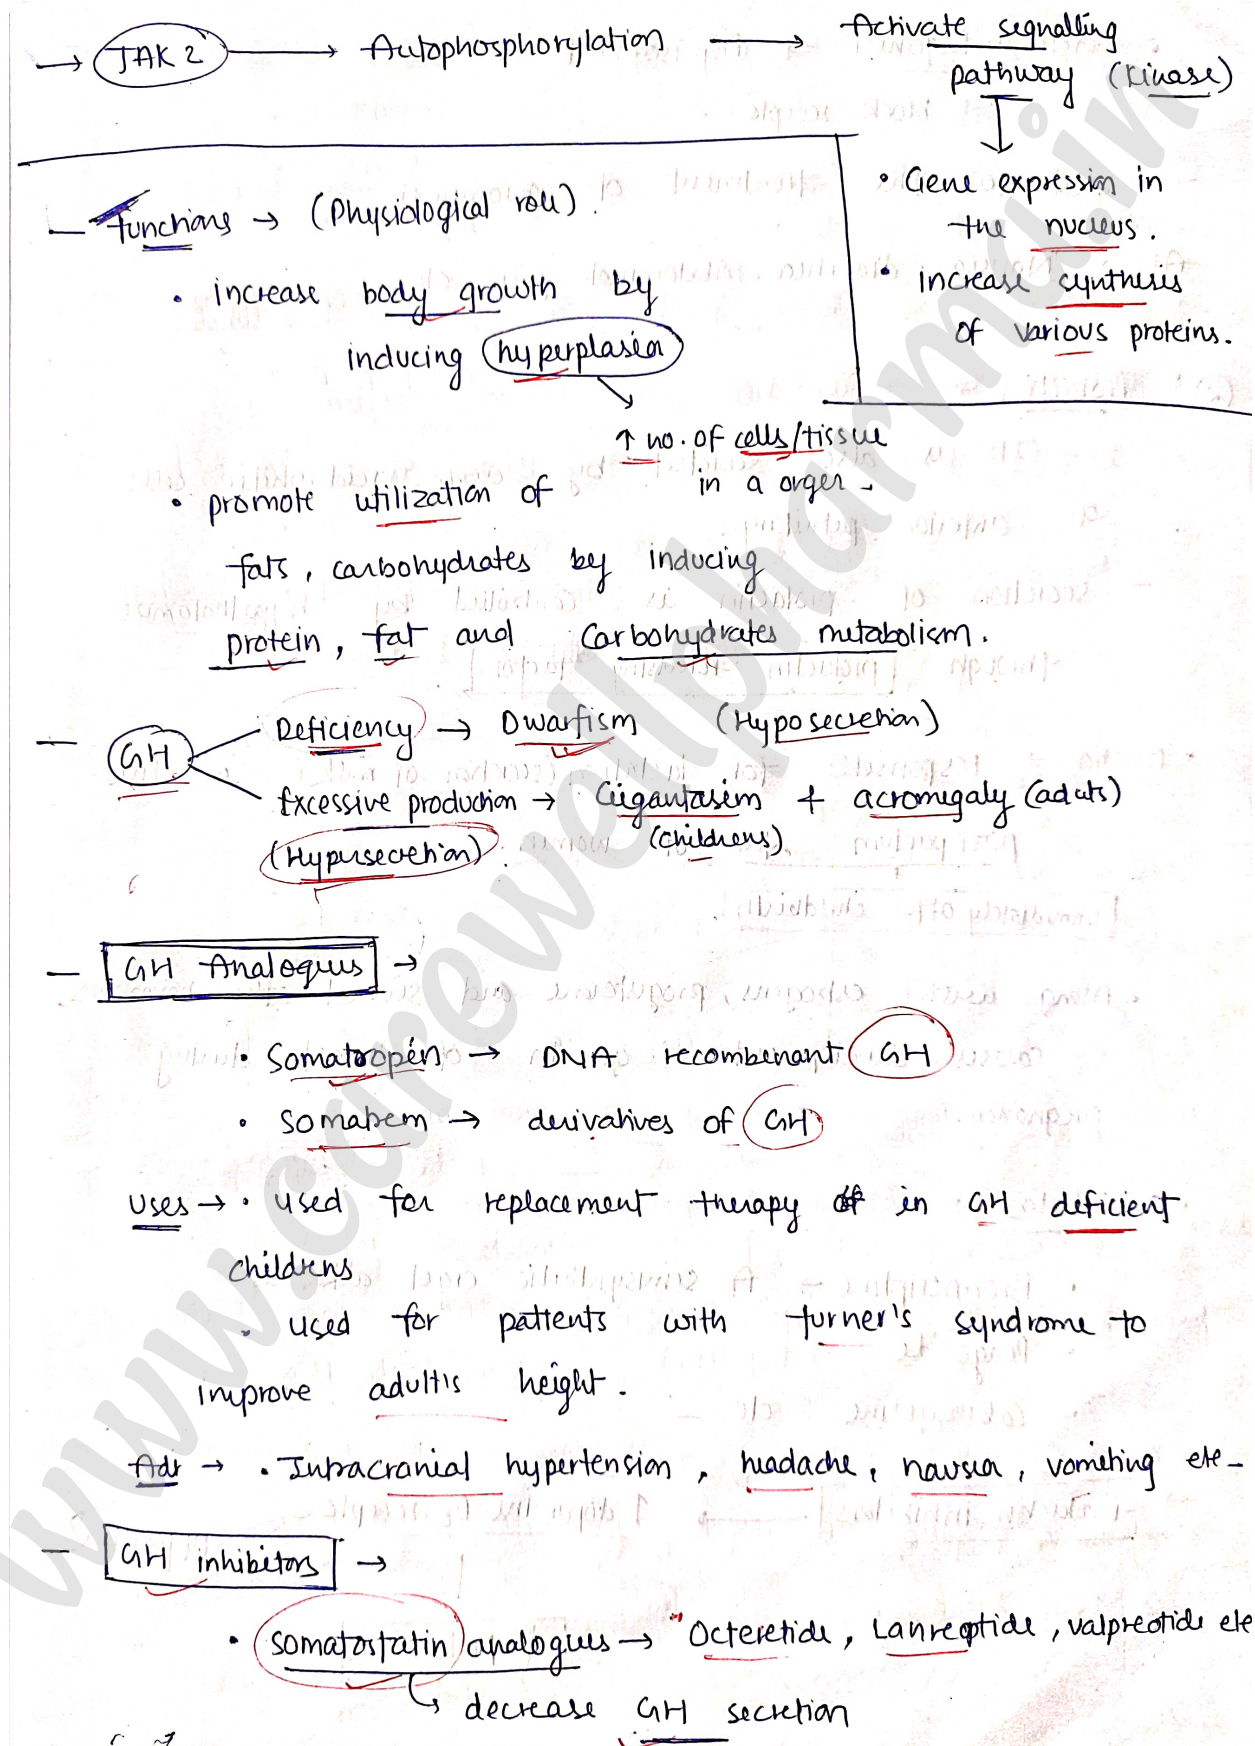 → JAK 2 → Autophosphorylation → Activate segnalling
pathway (Kinase)
• Gene expression in
the nucleus.
• increase synthesis
of various proteins.
— functions → (Physiological role).
• increase body growth by
inducing hyperplasia
↑ no. of cells/tissue
in a orger.
• promote utilization of
fats, carbohydrates by inducing
protein, fat and carbohydrates metabolism.
— GH
Deficiency → Dwarfism (Hyposecretion)
Excessive production → Gigantasim + acromegaly (aduts)
(Hypersecretion) (childrens)
— GH Analogues →
• Somatropin → DNA recombenant GH
• Somabem → derivatives of GH
Uses → • used for replacement therapy in GH deficient
childrens
• used for patients with turner's syndrome to
improve adult's height.
Adr → • Intracranial hypertension, headache, nausea, vomiting etc-
— GH inhibitors →
• Somatostatin analogues → "Octeretide, Lanreotide, valpreotide etc
↳ decrease GH secretion
www.carewellpharma.in